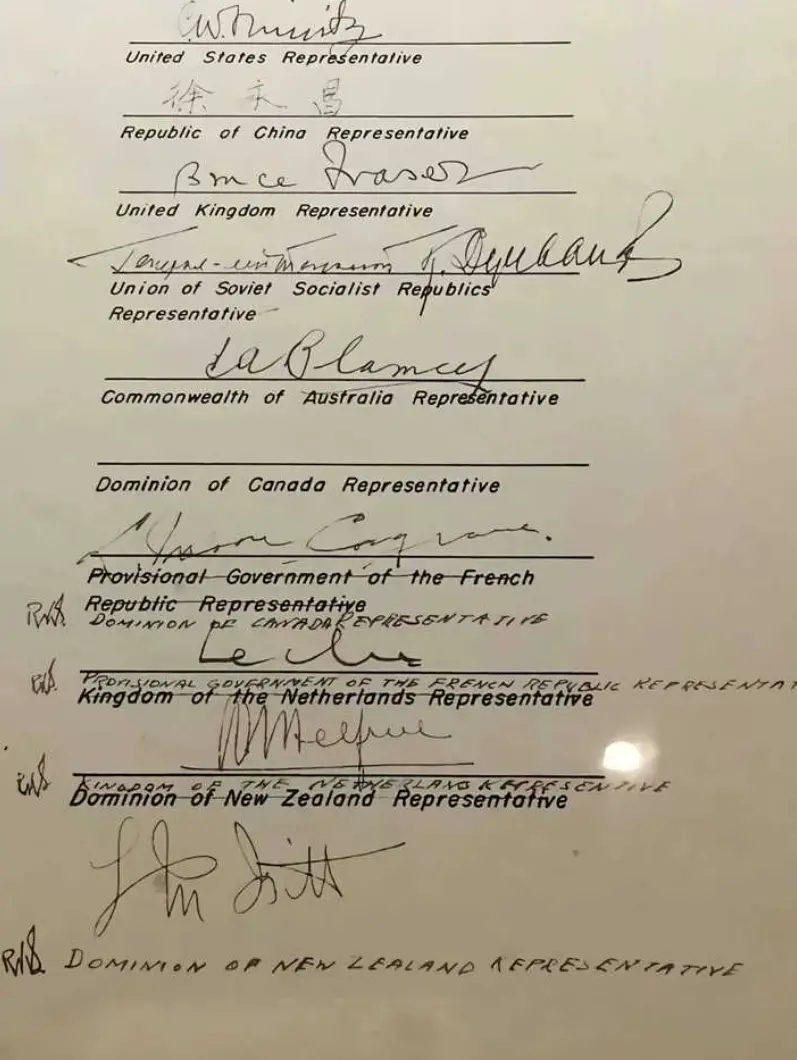 C.W. Nimitz
United States Representative
徐永昌
Republic of China Representative
Bruce Fraser
United Kingdom Representative
Генерал-лейтенант К. Деревянко
Union of Soviet Socialist Republics
Representative
T A Blamey
Commonwealth of Australia Representative
Dominion of Canada Representative
L. Moore Cosgrave.
Provisional Government of the French
Republic Representative
RKS DOMINION OF CANADA REPRESENTATIVE
Leclerc
RKS PROVISIONAL GOVERNMENT OF THE FRENCH REPUBLIC REPRESENTAT
Kingdom of the Netherlands Representative
Helfrich
RKS KINGDOM OF THE NETHERLANS REPRESENTIVE
Dominion of New Zealand Representative
L M Isitt
RKS DOMINION OF NEW ZEALAND REPRESENTATIVE